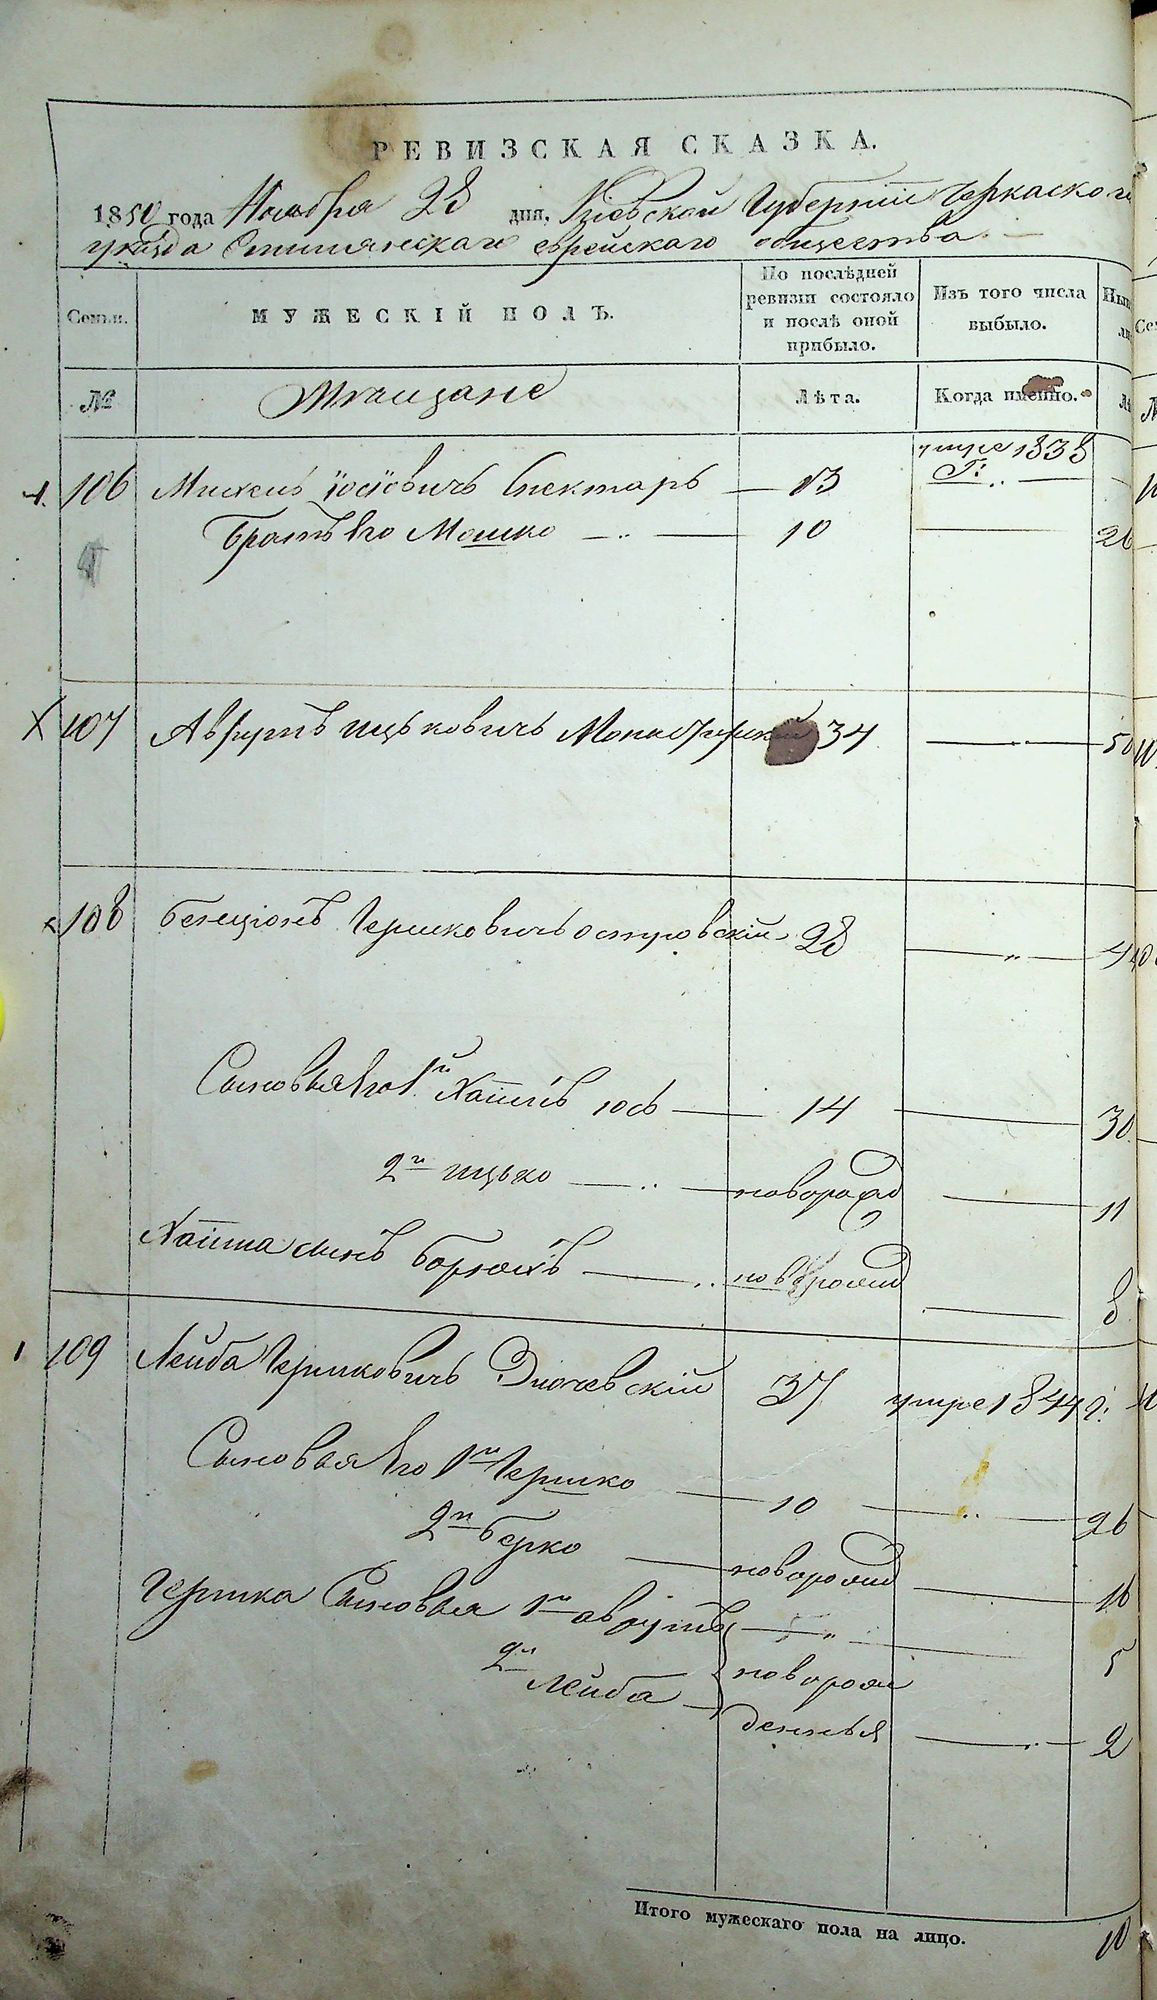 РЕВИЗСКАЯ СКАЗКА.
1850 года Ноября 28 дня, Кіевской Губерніи Черкаского
уезда Смилянскаго еврейскаго общества
Семьи. МУЖЕСКІЙ ПОЛЪ. По послѣдней ревизіи состояло и послѣ оной прибыло. Изъ того числа выбыло.
№ Мещане Лѣта. Когда именно.
106 Іосіовичъ Нектаръ — 13 умре 1838 Г:
Братъ Его Мошко — 10 — 26
107 Аврумъ Ицьковичъ Монастирскій 34 — 50
108 Бенціонъ Гершковичъ Островскій 28 — 4
Сыновья Его 1й Хаимъ Іось — 14 — 30
2й Ицько — новорожд — 11
Хаима сынъ Борухъ — новорожд — 8
109 Лейба Гершковичъ 37 умре 1844 г:
Сыновья Его 1й Гершко — 10 — 26
2й Берко — новорожд — 16
Гершка Сыновья 1й Аврумъ — 5
2й Лейба — новорож
денныя — 2
Итого мужескаго пола на лицо. 10